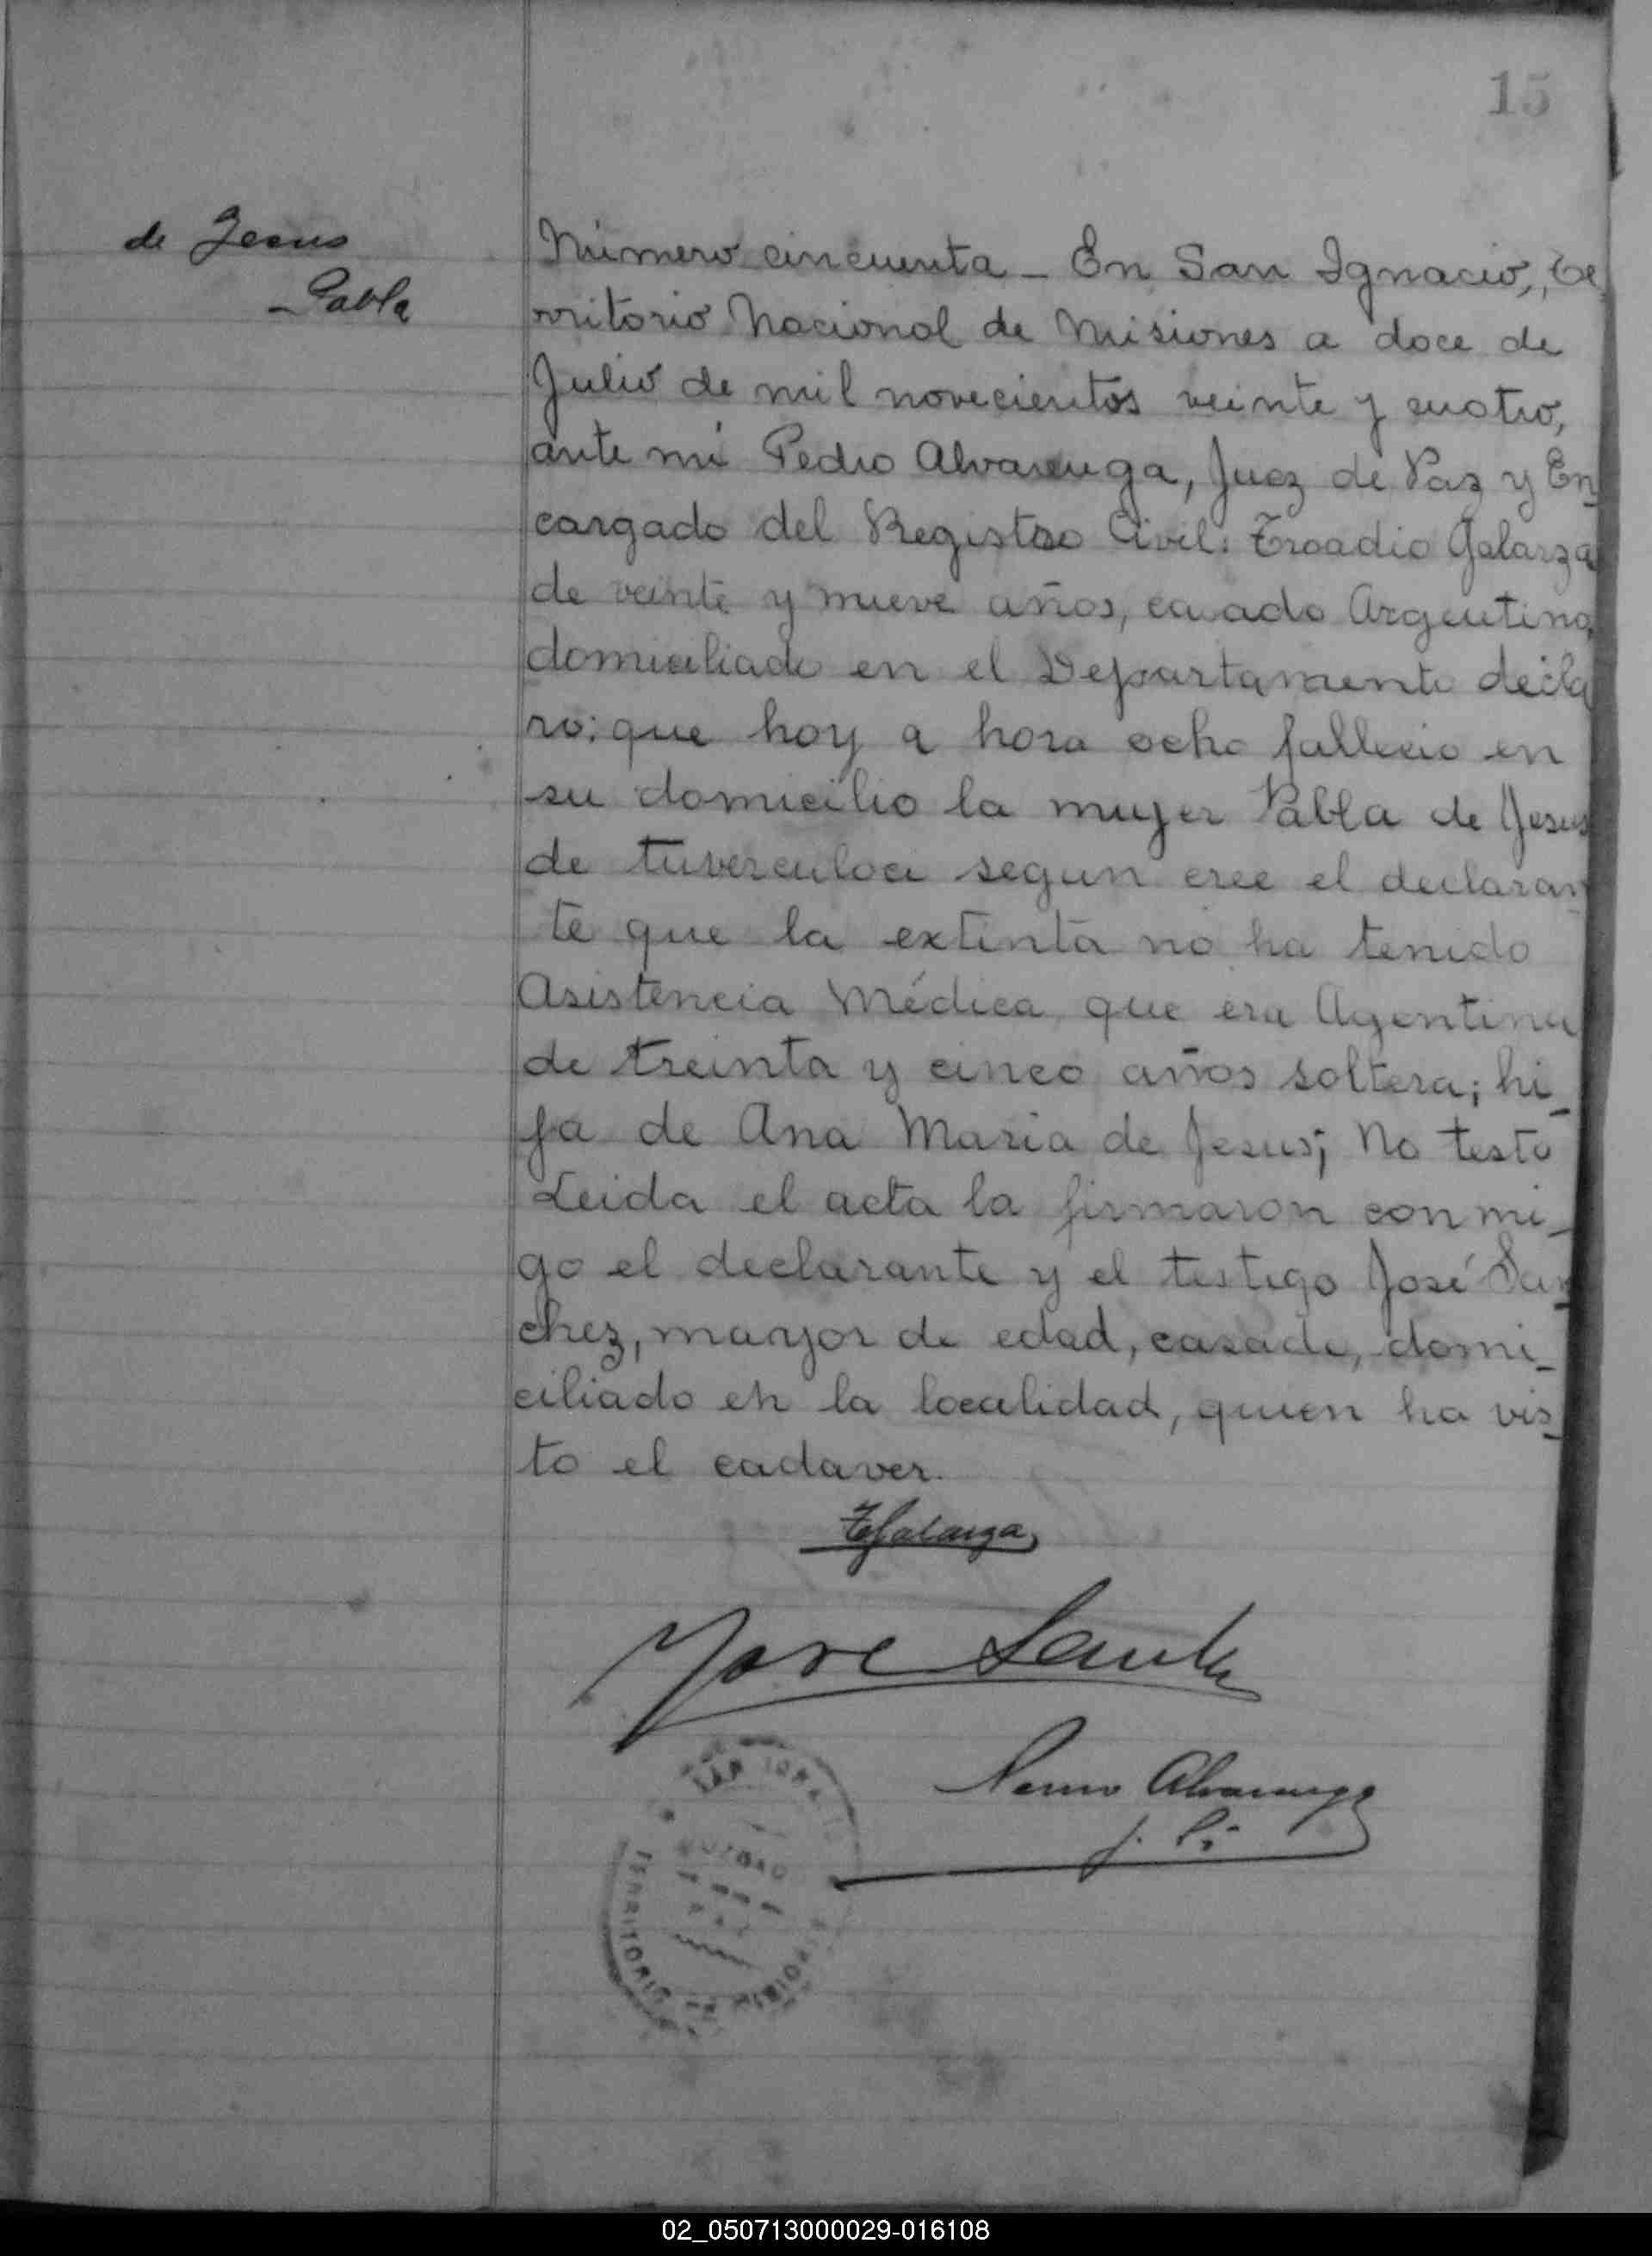 15
de Jesus
- Pabla
Número cincuenta - En San Ignacio, Te
rritorio Nacional de Misiones a doce de
Julio de mil novecientos veinte y cuatro,
ante mi Pedro Alvarenga, Juez de Paz y En
cargado del Registro Civil: Troadio Galarza
de veinte y nueve años, casado Argentino,
domiciliado en el Departamento decla
ro; que hoy a hora ocho fallecio en
su domicilio la mujer Pabla de Jesus
de tuverculoci segun cree el declaran
te que la extinta no ha tenido
Asistencia Médica que era Agentina
de treinta y cinco años soltera; hi_
ja de Ana Maria de Jesus; No testo
Leida el acta la firmaron con mi_
go el declarante y el testigo José San
chez, mayor de edad, casado, domi_
ciliado en la localidad, quien ha vis_
to el cadaver.
TGalarza
Jose
Alvarenga
SAN IGNACIO
JUZGADO
PAZ
TERRITORIO DE MISIONES
02_050713000029-016108